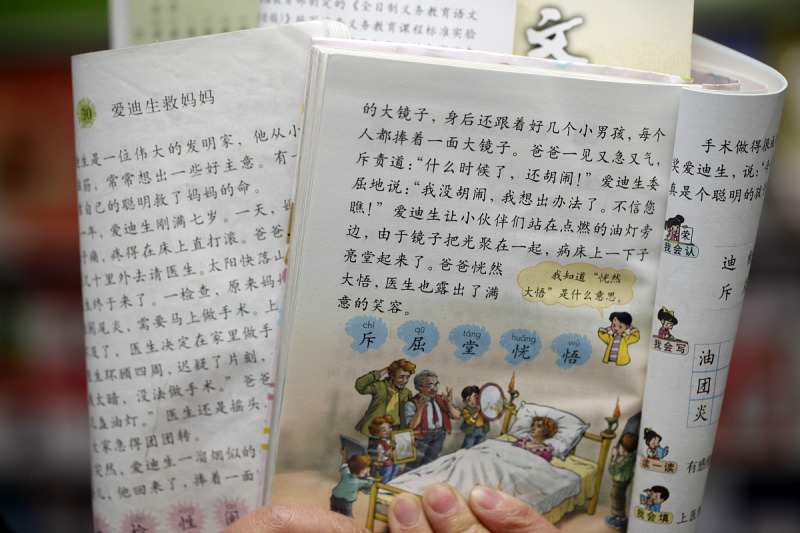 制定的《全日制义务教育语文
义务教育课程标准实验
文
30 爱迪生救妈妈
生是一位伟大的发明家，他从小
脑筋，常常想出一些好主意。有一
自己的聪明救了妈妈的命。
年，爱迪生刚满七岁。一天，妈
痛，疼得在床上直打滚。爸爸
几十里外去请医生。太阳快落山
生终于来了。一检查，原来妈
阑尾炎，需要马上做手术。上
及了，医生决定在家里做手
生环顾四周，迟疑了片刻，
太暗，没法做手术。”爸爸
盏油灯。”医生还是摇头
大家急得团团转。
突然，爱迪生一溜烟似的
他回来了，捧着一面
检 性 阑
的大镜子，身后还跟着好几个小男孩，每个
人都捧着一面大镜子。爸爸一见又急又气，
斥责道：“什么时候了，还胡闹！”爱迪生委
屈地说：“我没胡闹，我想出办法了。不信您
瞧！”爱迪生让小伙伴们站在点燃的油灯旁
边，由于镜子把光聚在一起，病床上一下子
亮堂起来了。爸爸恍然
大悟，医生也露出了满
意的笑容。
我知道“恍然
大悟”是什么意思。
chì qū táng huǎng wù
斥 屈 堂 恍 悟
手术做得很
奖爱迪生，说：“
真是个聪明的孩
荣
我会认
迪
斥
我会写
油
团
炎
读一读
有
我会填
上医